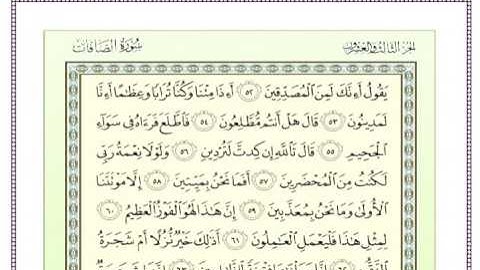 الجزء الثالث والعشرون سُورَةُ الصَّافَّات
يَقُولُ أَءِنَّكَ لَمِنَ ٱلْمُصَدِّقِينَ ٥٢ أَءِذَا مِتْنَا وَكُنَّا تُرَابًا وَعِظَٰمًا أَءِنَّا
لَمَدِينُونَ ٥٣ قَالَ هَلْ أَنتُم مُّطَّلِعُونَ ٥٤ فَٱطَّلَعَ فَرَءَاهُ فِى سَوَآءِ
ٱلْجَحِيمِ ٥٥ قَالَ تَٱللَّهِ إِن كِدتَّ لَتُرْدِينِ ٥٦ وَلَوْلَا نِعْمَةُ رَبِّى
لَكُنتُ مِنَ ٱلْمُحْضَرِينَ ٥٧ أَفَمَا نَحْنُ بِمَيِّتِينَ ٥٨ إِلَّا مَوْتَتَنَا
ٱلْأُولَىٰ وَمَا نَحْنُ بِمُعَذَّبِينَ ٥٩ إِنَّ هَٰذَا لَهُوَ ٱلْفَوْزُ ٱلْعَظِيمُ ٦٠
لِمِثْلِ هَٰذَا فَلْيَعْمَلِ ٱلْعَٰمِلُونَ ٦١ أَذَٰلِكَ خَيْرٌ نُّزُلًا أَمْ شَجَرَةُ